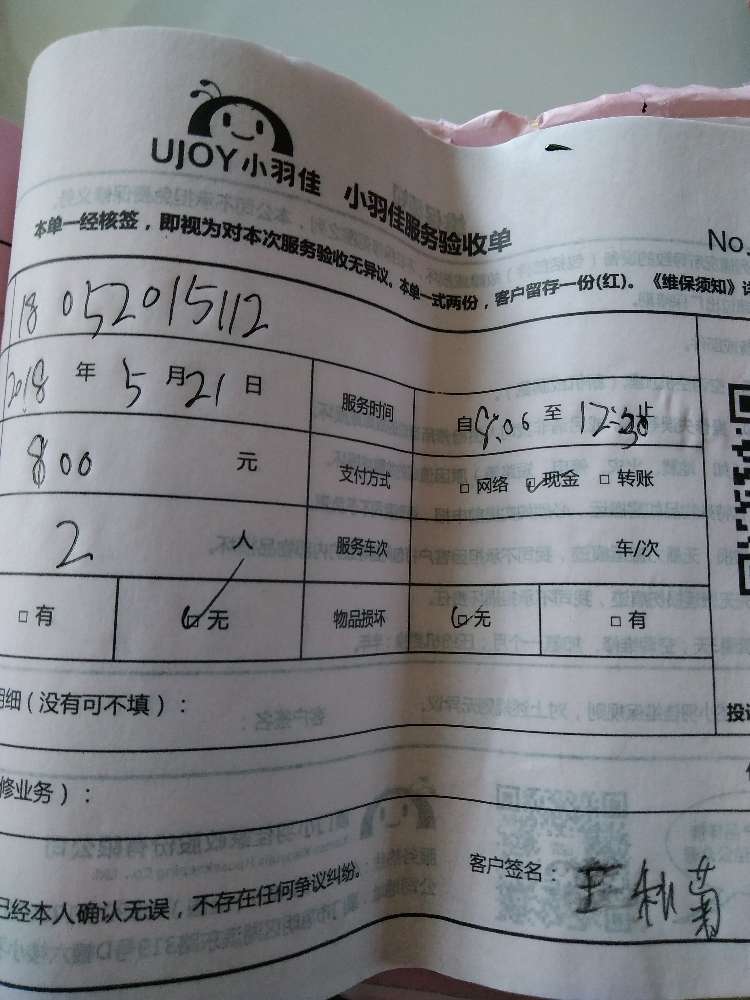 UJOY小羽佳 小羽佳服务验收单
No.
本单一经核签，即视为对本次服务验收无异议。本单一式两份，客户留存一份(红)。《维保须知》详
18052015112
2018年5月21日 服务时间 自8:06至12:30止
800元 支付方式 □网络 □现金 □转账
2人 服务车次 车/次
□有 □无 物品损坏 □无 □有
明细（没有可不填）：
投诉
修业务）：
客户签名：
已经本人确认无误，不存在任何争议纠纷。